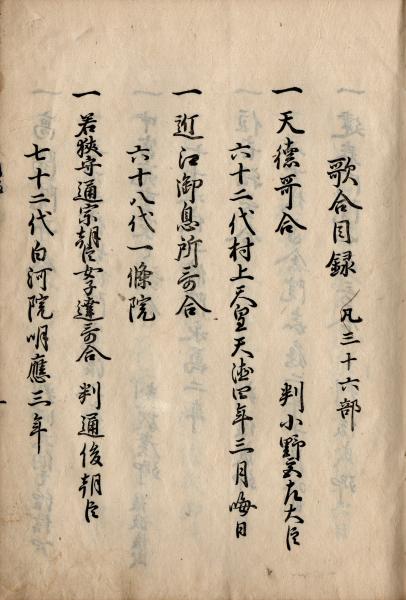 歌合目録 凡三十六部
一天德哥合 判小野宮左大臣
六十二代村上天皇天德四年三月晦日
一近江御息所哥合
六十八代一條院
一若狹守通宗朝臣女子達哥合 判通俊朝臣
七十二代白河院明應三年